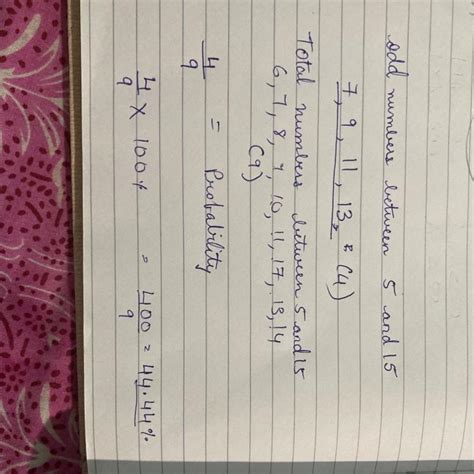 odd numbers between 5 and 15
7, 9, 11, 13, = (4)
Total numbers between 5 and 15
6, 7, 8, 9, 10, 11, 17, 13, 14
(9)
4/9 = Probability
4/9 × 100% = 400/9 = 44.44%